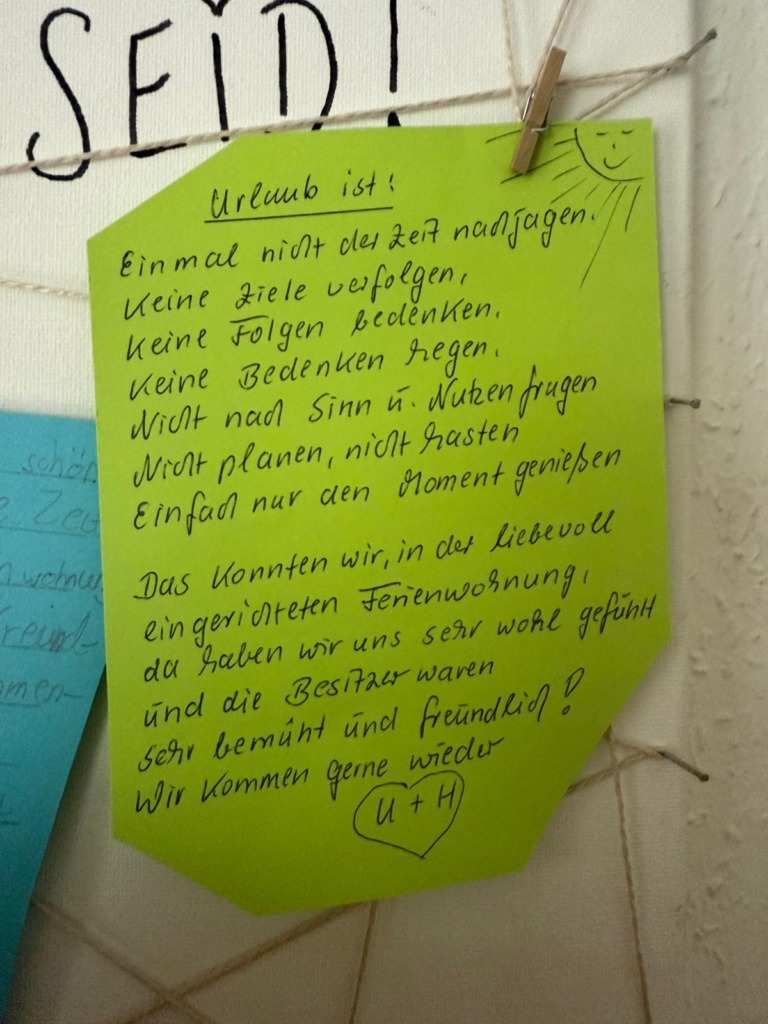 SEiD!
Urlaub ist:
Einmal nicht der Zeit nachjagen.
Keine Ziele verfolgen,
Keine Folgen bedenken.
Keine Bedenken hegen.
Nicht nach Sinn u. Nutzen fragen
Nicht planen, nicht hasten
Einfach nur den Moment genießen
Das Konnten wir, in der liebevoll
eingerichteten Ferienwohnung,
da haben wir uns sehr wohl gefühlt
und die Besitzer waren
sehr bemüht und freundlich!
Wir Kommen gerne wieder
U + H
schön
Zeit